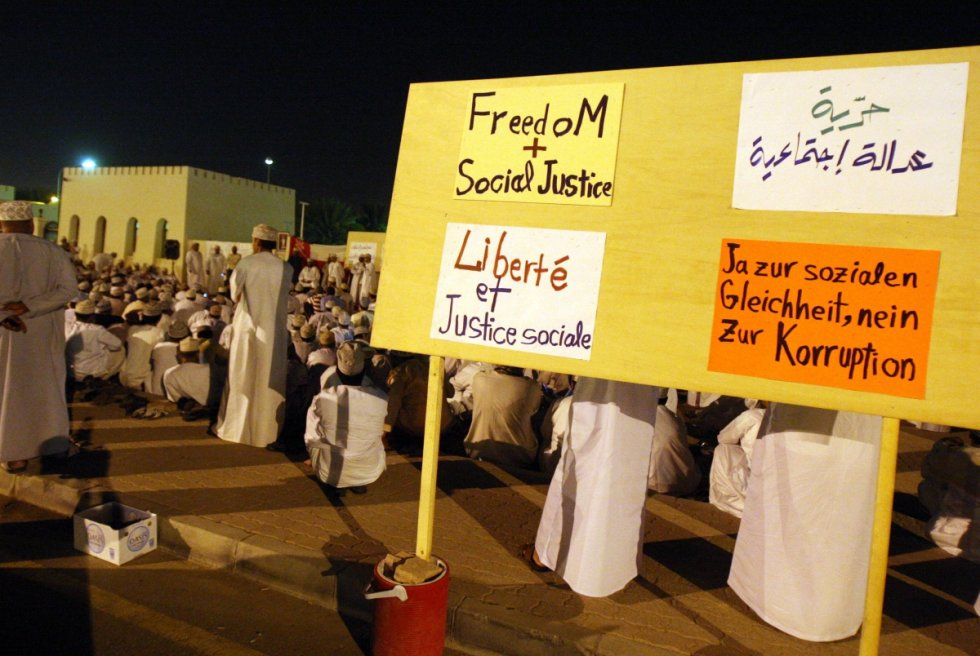 FreedoM
+
Social Justice
حرّية
عدالة إجتماعية
Liberté
et
Justice sociale
Ja zur sozialen
Gleichheit, nein
Zur Korruption
OASIS